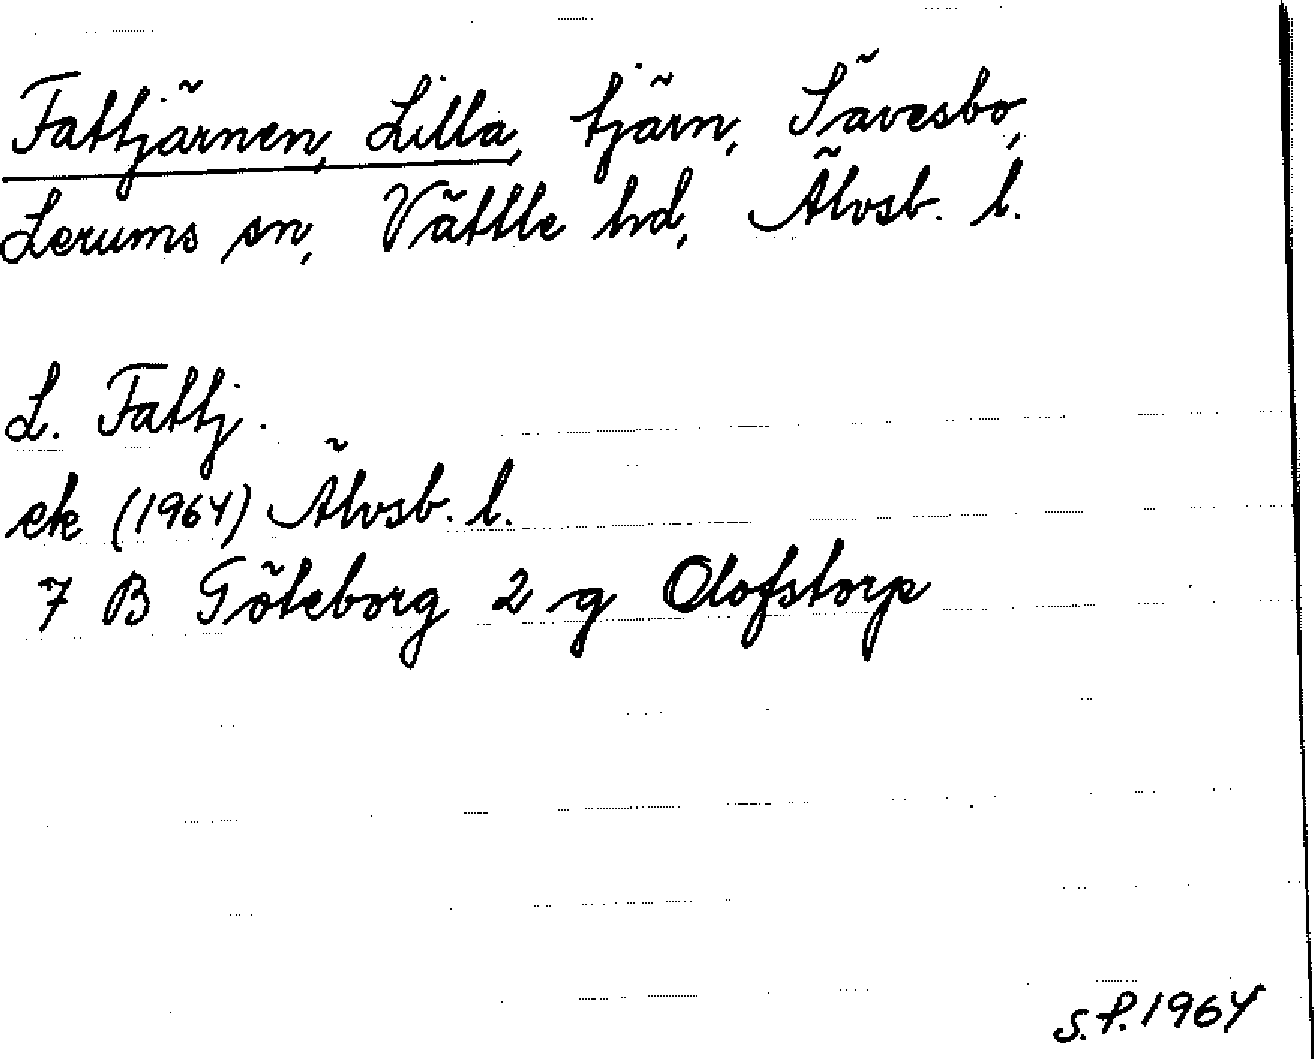 Fattjärnen, Lilla, tjärn, Sävesbo,
Lerums sn, Vättle hd, Älvsb. l.
L. Fattj.
ek (1964) Älvsb. l.
7 B Göteborg 2 g Olofstorp
S.P. 1964